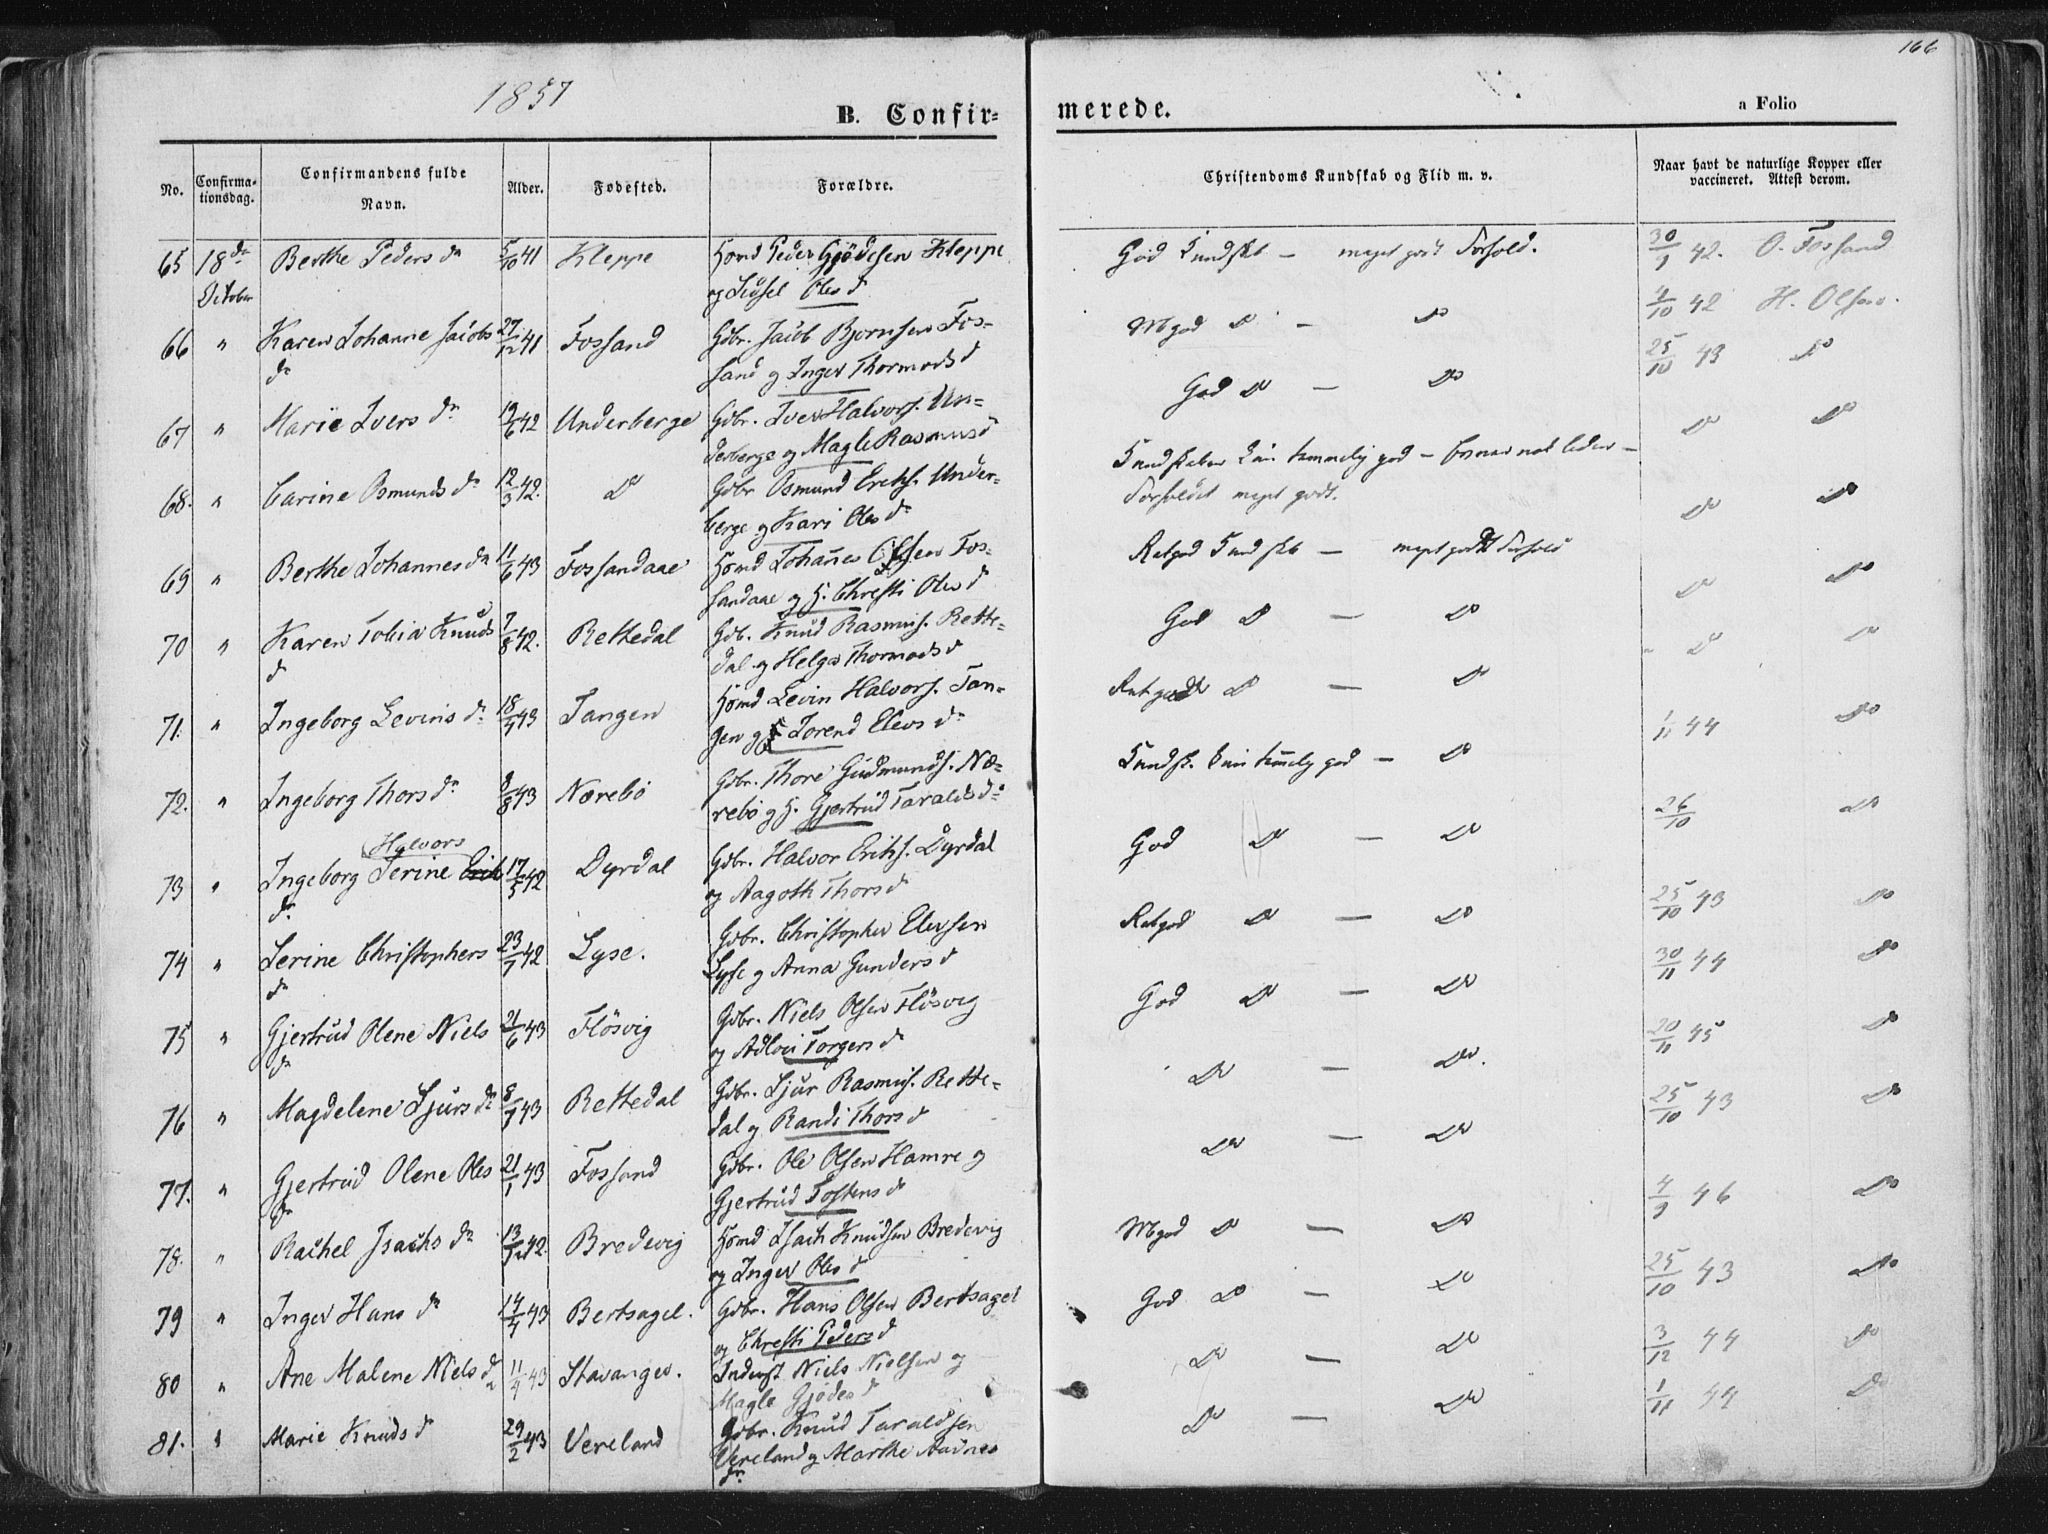 1857
166
B. Confir-
merede.
a Folio
No.
Confirma-
tionsdag.
Confirmandens fulde
Navn.
Alder.
Fødested.
Forældre.
Christendoms Kundskab og Flid m. v.
Naar havt de naturlige Kopper eller
vaccineret. Attest derom.
65 18de Berthe Peders dr 5/10 41 Kleppe Hsmd Peder Gjödesen Kleppe
October og Sidsel Oles d
God Kundskb — meget godt Forhold. 30/9 42. O. Fossand
66 " Karen Johanne Jacobs 27/12 41 Fossand Gdbr. Jacob Bjornsen Fos-
dr sand og Inger Thormods d
Mgod Do — Do 4/10 42 H. Olsen.
67 " Marie Ivers dr 19/6 42 Underberge Gdbr. Iver Halvors. Un-
derberge og Magle Rasmus d
God Do — Do 25/10 43 Do
68. " Carine Osmunds dr 12/3 42. Do Gdbr Osmund Eriks. Under-
berge og Kari Oles dr
Kundskaben kun temmelig god —
Forholdet meget godt. Do Do
69 " Berthe Johannes dr 11/6 43 Fossandaae Hsmd Johanes Olsen Fos-
sandaae og H. Christi Oles d
Retgod Kundskb — meget godt Forhold Do Do
70 " Karen Tobia Knuds 7/8 42. Rettedal Gdb. Knud Rasmus. Rette-
d dal og Helga Thormods d
God Do — Do Do Do
71. " Ingeborg Levins dr 18/7 43 Tangen Hsmd Levin Halvors. Tan-
gen og Jorend Elevs dr
Retgod Do — Do Do Do
72. " Ingeborg Thors dr 8/8 43 Nærebö Gdbr. Thore Gudmunds. Næ-
rebö og H. Gjertrud Taralds dr
Kundsk. kun temelig god — Do 1/11 44 Do
Halvors
73 " Ingeborg Serine Erik 17/5 42 Dyrdal Gdbr. Halvor Eriks. Dyrdal
dr og Aagoth Thors d
God Do — Do 26/10 Do
74 " Serine Christophers 23/7 42 Lyse. Gdbr. Christopher Elevsen
dr Lyse og Anna Gunders d
Retgod Do — Do 25/10 43 Do
75 " Gjertrud Olene Niels 21/6 43 Flösvig Gdbr. Niels Olsen Flösvig
dr og Adloui Torgers dr
God Do — Do 30/11 44 Do
76 " Magdelene Sjurs dr 8/7 43 Rettedal Gdbr. Sjur Rasmus. Rette-
dal og Randi Thors d
Do — Do. 20/11 45 Do
77. " Gjertrud Olene Oles 21/1 43 Fossand Gdbr. Ole Olsen Hamre og
dr Gjertrud Tostens dr
Do — Do 25/10 43 Do
78. " Rachel Isachs dr 13/12 42. Bredevig Hsmd Isach Knudsen Bredevig
og Inger Oles d
Mgod Do — Do 4/9 46 Do
79 " Inger Hans dr 14/4 43 Bertsagel. Gdbr. Hans Olsen Bertsagel
og Christi Peders d
God Do — Do 25/10 43 Do
80 " Ane Malene Niels dr 11/4 43 Stavanger. Inderst Niels Nielsen og
Magla Gjödes d
Do — Do 3/12 44 Do
81. " Marie Knuds dr 29/2 43 Vereland Gdbr. Knud Taraldsen
Vereland og Marthe Aadnes
dr
Do — Do 1/11 44 Do